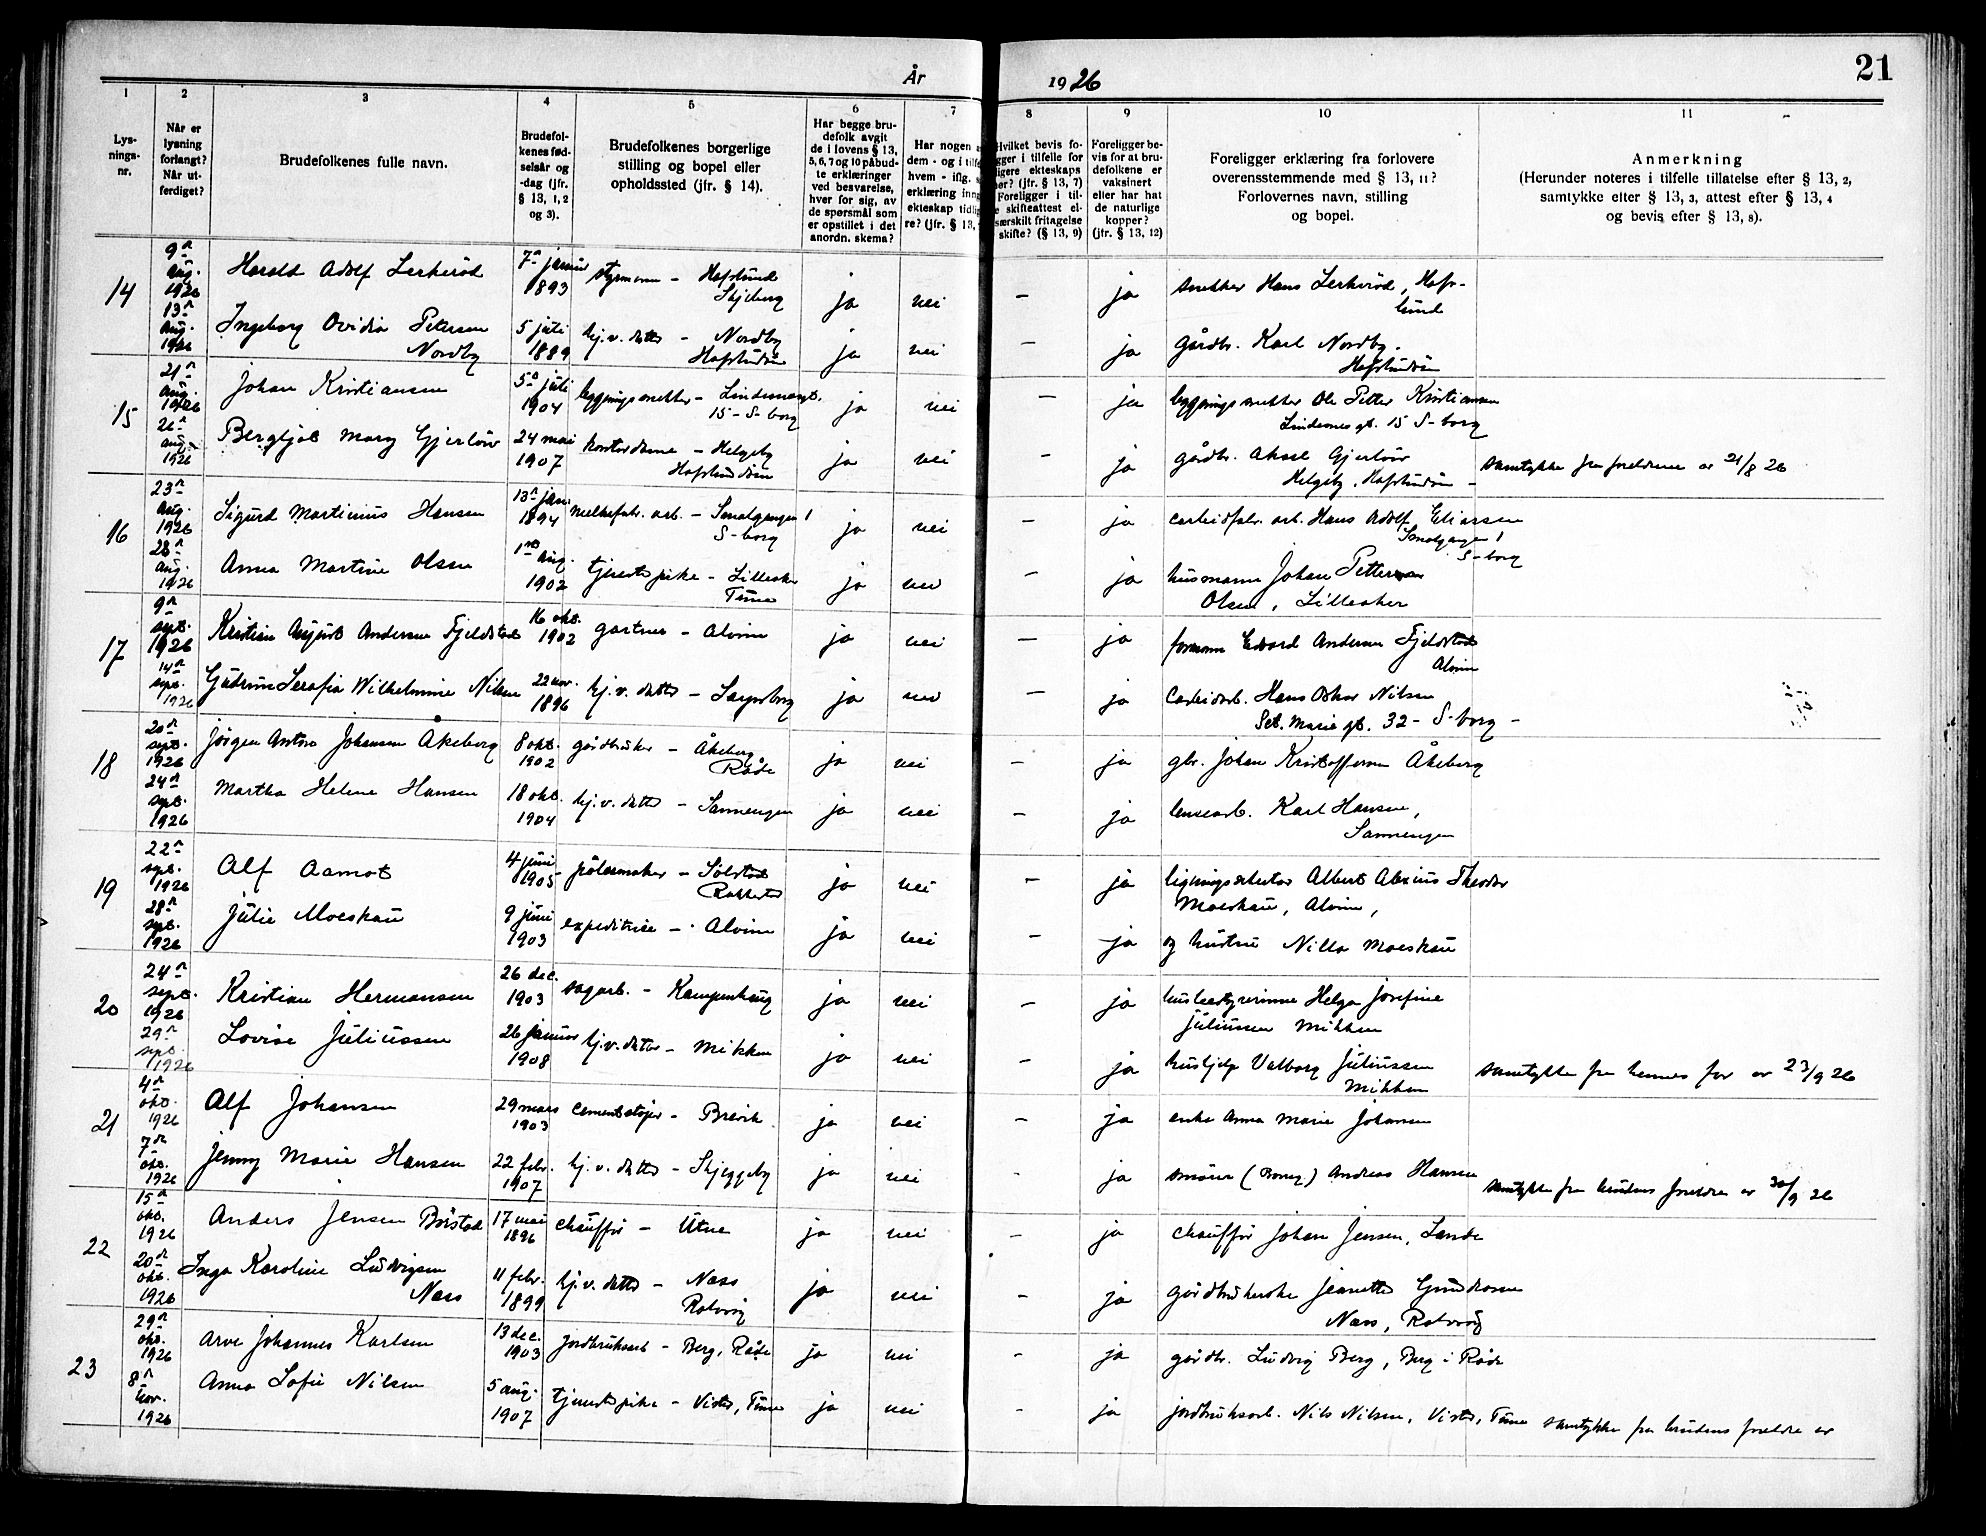 År 1926
21
1 2 3 4 5 6 7 8 9 10 11
Lys-
nings-
nr.
Når er
lysning
forlangt?
Når ut-
ferdiget?
Brudefolkenes fulle navn.
Brudefol-
kenes fød-
selsår og
-dag (jfr.
§ 13, 1, 2
og 3).
Brudefolkenes borgerlige
stilling og bopel eller
opholdssted (jfr. § 14).
Har begge bru-
defolk avgit
de i lovens § 13,
5, 6, 7 og 10 påbud-
te erklæringer
ved besvarelse,
hver for sig, av
de spørsmål som
er opstillet i det
anordn. skema?
Har nogen
dem - og i tilf
hvem - iflg.
erklæring inn
ekteskap tidli
re? (jfr. § 13,
Hvilket bevis fo-
gger i tilfelle for
ligere ekteskaps
ør? (jfr. § 13, 7)
Foreligger i til-
e skifteattest el-
særskilt fritagelse
skifte? (§ 13, 9)
Foreligger be-
vis for at bru-
defolkene er
vaksinert
eller har hat
de naturlige
kopper?
(jfr. § 13, 12)
Foreligger erklæring fra forlovere
overensstemmende med § 13, 11?
Forlovernes navn, stilling
og bopel.
Anmerkning
(Herunder noteres i tilfelle tillatelse efter § 13, 2,
samtykke efter § 13, 3, attest efter § 13, 4
og bevis efter § 13, 8).
14
9de aug. 1926
13de aug. 1926
Harald Adolf Lerkerød 7de januar 1893 styrmann - Hafslund Skjeberg ja nei - ja snekker Hans Lerkerød, Hafs-
lund
Ingeborg Ovidia Petersen Nordby 5 juli 1889 hj.v. datter - Nordby Hafslundsøen ja nei - ja gårdbr. Karl Nordby.
Hafslundsøen
15
21de aug. 1926
26de aug. 1926
Johan Kristiansen 5te juli 1904 bygningssnekker - Lindemansgt. 15 - S-borg ja nei - ja bygningssnekker Ole Petter Kristiansen
15 S-borg
Bergljot Mary Gjerløw 24 mai 1907 kontordame - Helgeby Hafslundsøen ja nei - ja gårdbr. Aksel Gjerløw
Helgeby, Hafslundsøen - samtykke fra foreldrene av 21/8 26
16
23de aug. 1926
28de aug. 1926
Sigurd Martinius Hansen 13de jan. 1894 melkefabr. arb. - Smalgangen 1 S-borg ja nei - ja carbidfabr. arb. Hans Adolf Eliassen
Smalgangen 1
S-borg
Anna Martine Olsen 1ste aug. 1902 tjenestepike - Lilleaker Tune ja nei - ja husmann Johan Petter
Olsen, Lilleaker
17
9de sept. 1926
14de sept. 1926
Kristian August Andersen Fjeldstad 16 okt. 1902 gartner - Alvim ja nei - ja formann Edvard Andersen Fjeldstad
Alvim
Gudrun Serafia Wilhelmine Nilsen 22 nov. 1896 hj.v. datter - Sarpsborg ja nei - ja carbidarb. Hans Oskar Nilsen
Sct. Marie gt. 32 - S-borg -
18
20de sept. 1926
24de sept. 1926
Jørgen Anton Johansen Åkeberg 8 okt. 1902 gårdbruker - Åkeberg Råde ja nei - ja gbr. Johan Kristoffersen Åkeberg
Martha Helene Hansen 18 okt. 1904 hj.v. datter - Sannengen ja nei - ja lensearb. Karl Hansen,
Sannengen
19
22de sept. 1926
28de sept. 1926
Alf Aamot 4 juni 1905 pølsemaker - Sølstad Rakkestad ja nei - ja ligningssekretær Albert Alexius Theodor
Moeskau, Alvim,
Julie Moeskau 9 juni 1903 expeditrise - Alvim ja nei - ja og hustru Nilla Moeskau
20
24de sept. 1926
29de sept. 1926
Kristian Hermansen 26 dec. 1903 sagarb. - Kampenhaug ja nei - ja husbestyrerinne Helga Josefine
Juliussen Mikken
Lovise Juliussen 26 januar 1908 hj.v. datter - Mikken ja nei - ja hushjelp Valborg Juliussen
Mikken samtykke fra hennes far av 23/9 26
21
4de okt. 1926
7de okt. 1926
Alf Johansen 29 mars 1903 cementstøper - Brevik ja nei - ja enke Anna Marie Johansen
Jenny Marie Hansen 22 febr. 1907 hj.v. datter - Skjeggeby ja nei - ja smører (Borreg.) Andreas Hansen samtykke fra brudens foreldre av 30/9 26
22
15de okt. 1926
20de okt. 1926
Anders Jensen Bøstad 17 mai 1896 chauffør - Utne ja nei - ja chauffør Johan Jensen, Lande
Inga Karoline Ludvigsen Næss 11 febr. 1899 hj.v. datter - Næss Rolvsøy ja nei - ja gårdbrukerske Jeanette Gundersen
Næss, Rolvsøy
23
29de okt. 1926
8de nov. 1926
Arve Johannes Karlsen 13 dec. 1903 jordbruksarb - Berg, Råde ja nei - ja gårdbr. Ludvig Berg, Berg i Råde
Anna Sofie Nilsen 5 aug. 1907 tjenestepike - Vister, Tune ja nei - ja jordbruksarb. Nils Nilsen, Vister, Tune samtykke fra brudens foreldre av